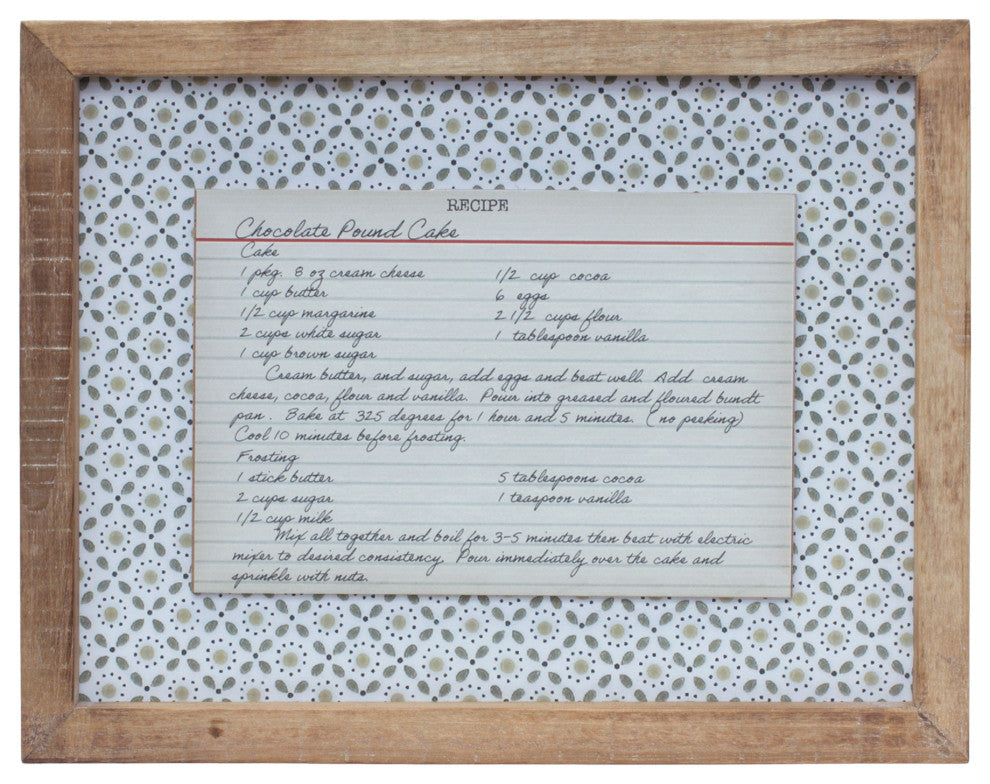 RECIPE
Chocolate Pound Cake
Cake
1 pkg. 8 oz cream cheese 1/2 cup cocoa
1 cup butter 6 eggs
1/2 cup margarine 2 1/2 cups flour
2 cups white sugar 1 tablespoon vanilla
1 cup brown sugar
Cream butter, and sugar, add eggs and beat well. Add cream
cheese, cocoa, flour and vanilla. Pour into greased and floured bundt
pan. Bake at 325 degrees for 1 hour and 5 minutes. (no peeking)
Cool 10 minutes before frosting.
Frosting
1 stick butter 5 tablespoons cocoa
2 cups sugar 1 teaspoon vanilla
1/2 cup milk
Mix all together and boil for 3-5 minutes then beat with electric
mixer to desired consistency. Pour immediately over the cake and
sprinkle with nuts.